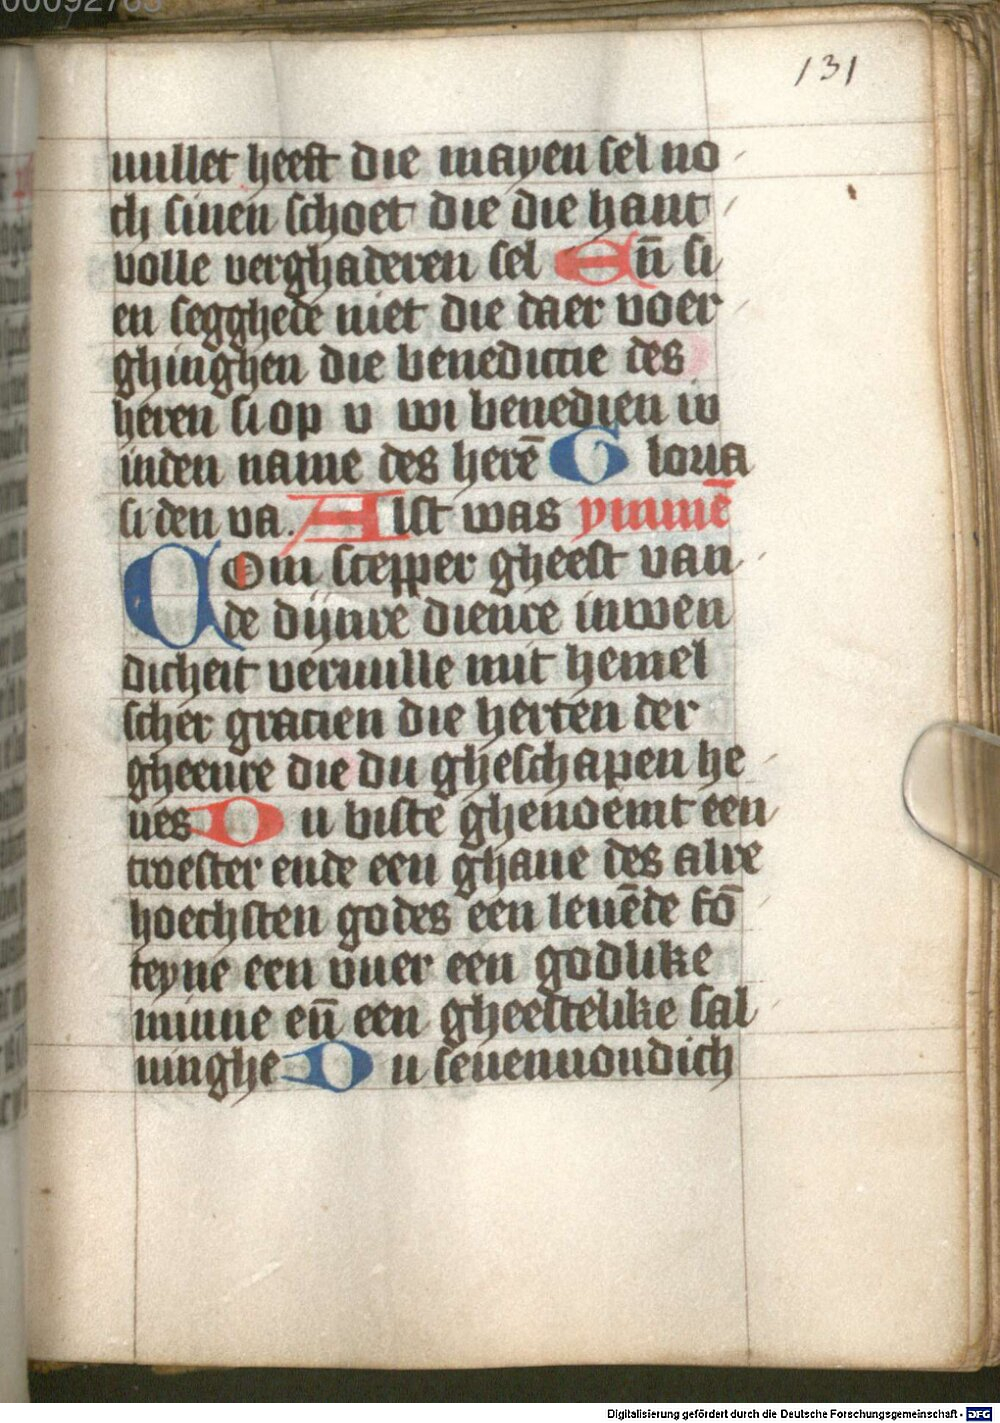 00092765
131
uullet heeft die mayen sel no
ch sinen schoet die die hant
volle verghaderen sel En̄ si
en segghede niet die daer voer
ghinghen die benedictie des
heren si op v wi benedien iv
inden name des herē Gloria
si den va. Alst was ymmē
Com scepper gheest van
de dijnre dienre inwen
dicheit veruulle mit hemel
scher gracien die herten der
gheenre die du gheschapen he
ues Du biste ghenoemt een
troester ende een ghaue des alre
hoechsten godes een leuēde fō
teyne een vuer een godlike
minne en̄ een gheestelike sal
uinghe Du seuenuoudich
Digitalisierung gefördert durch die Deutsche Forschungsgemeinschaft - DFG